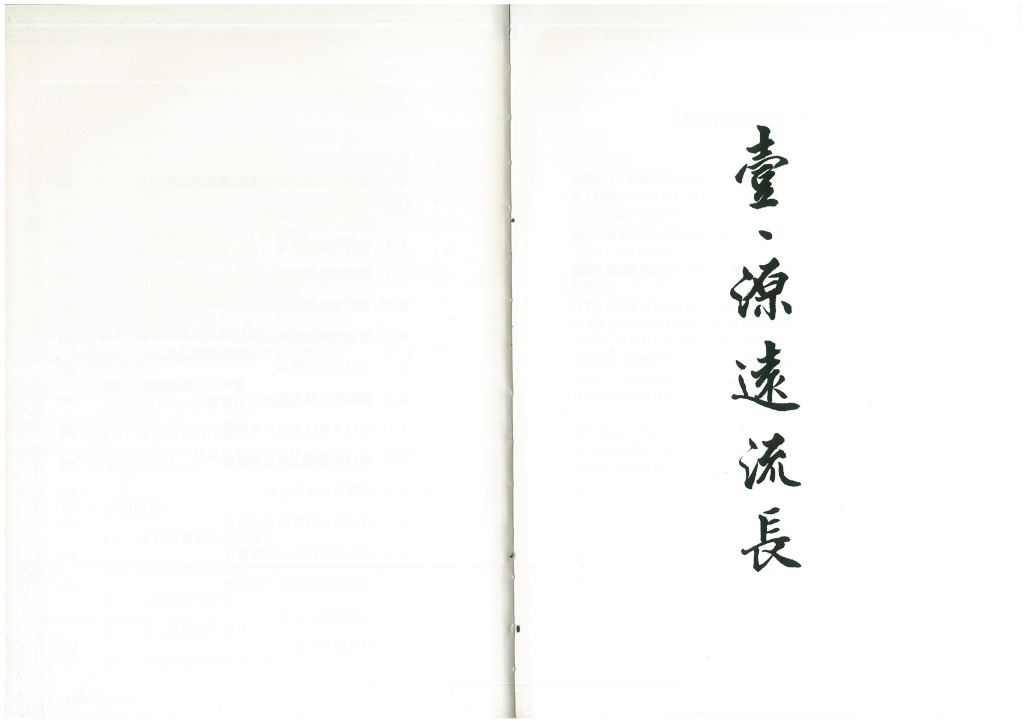 壹、源遠流長